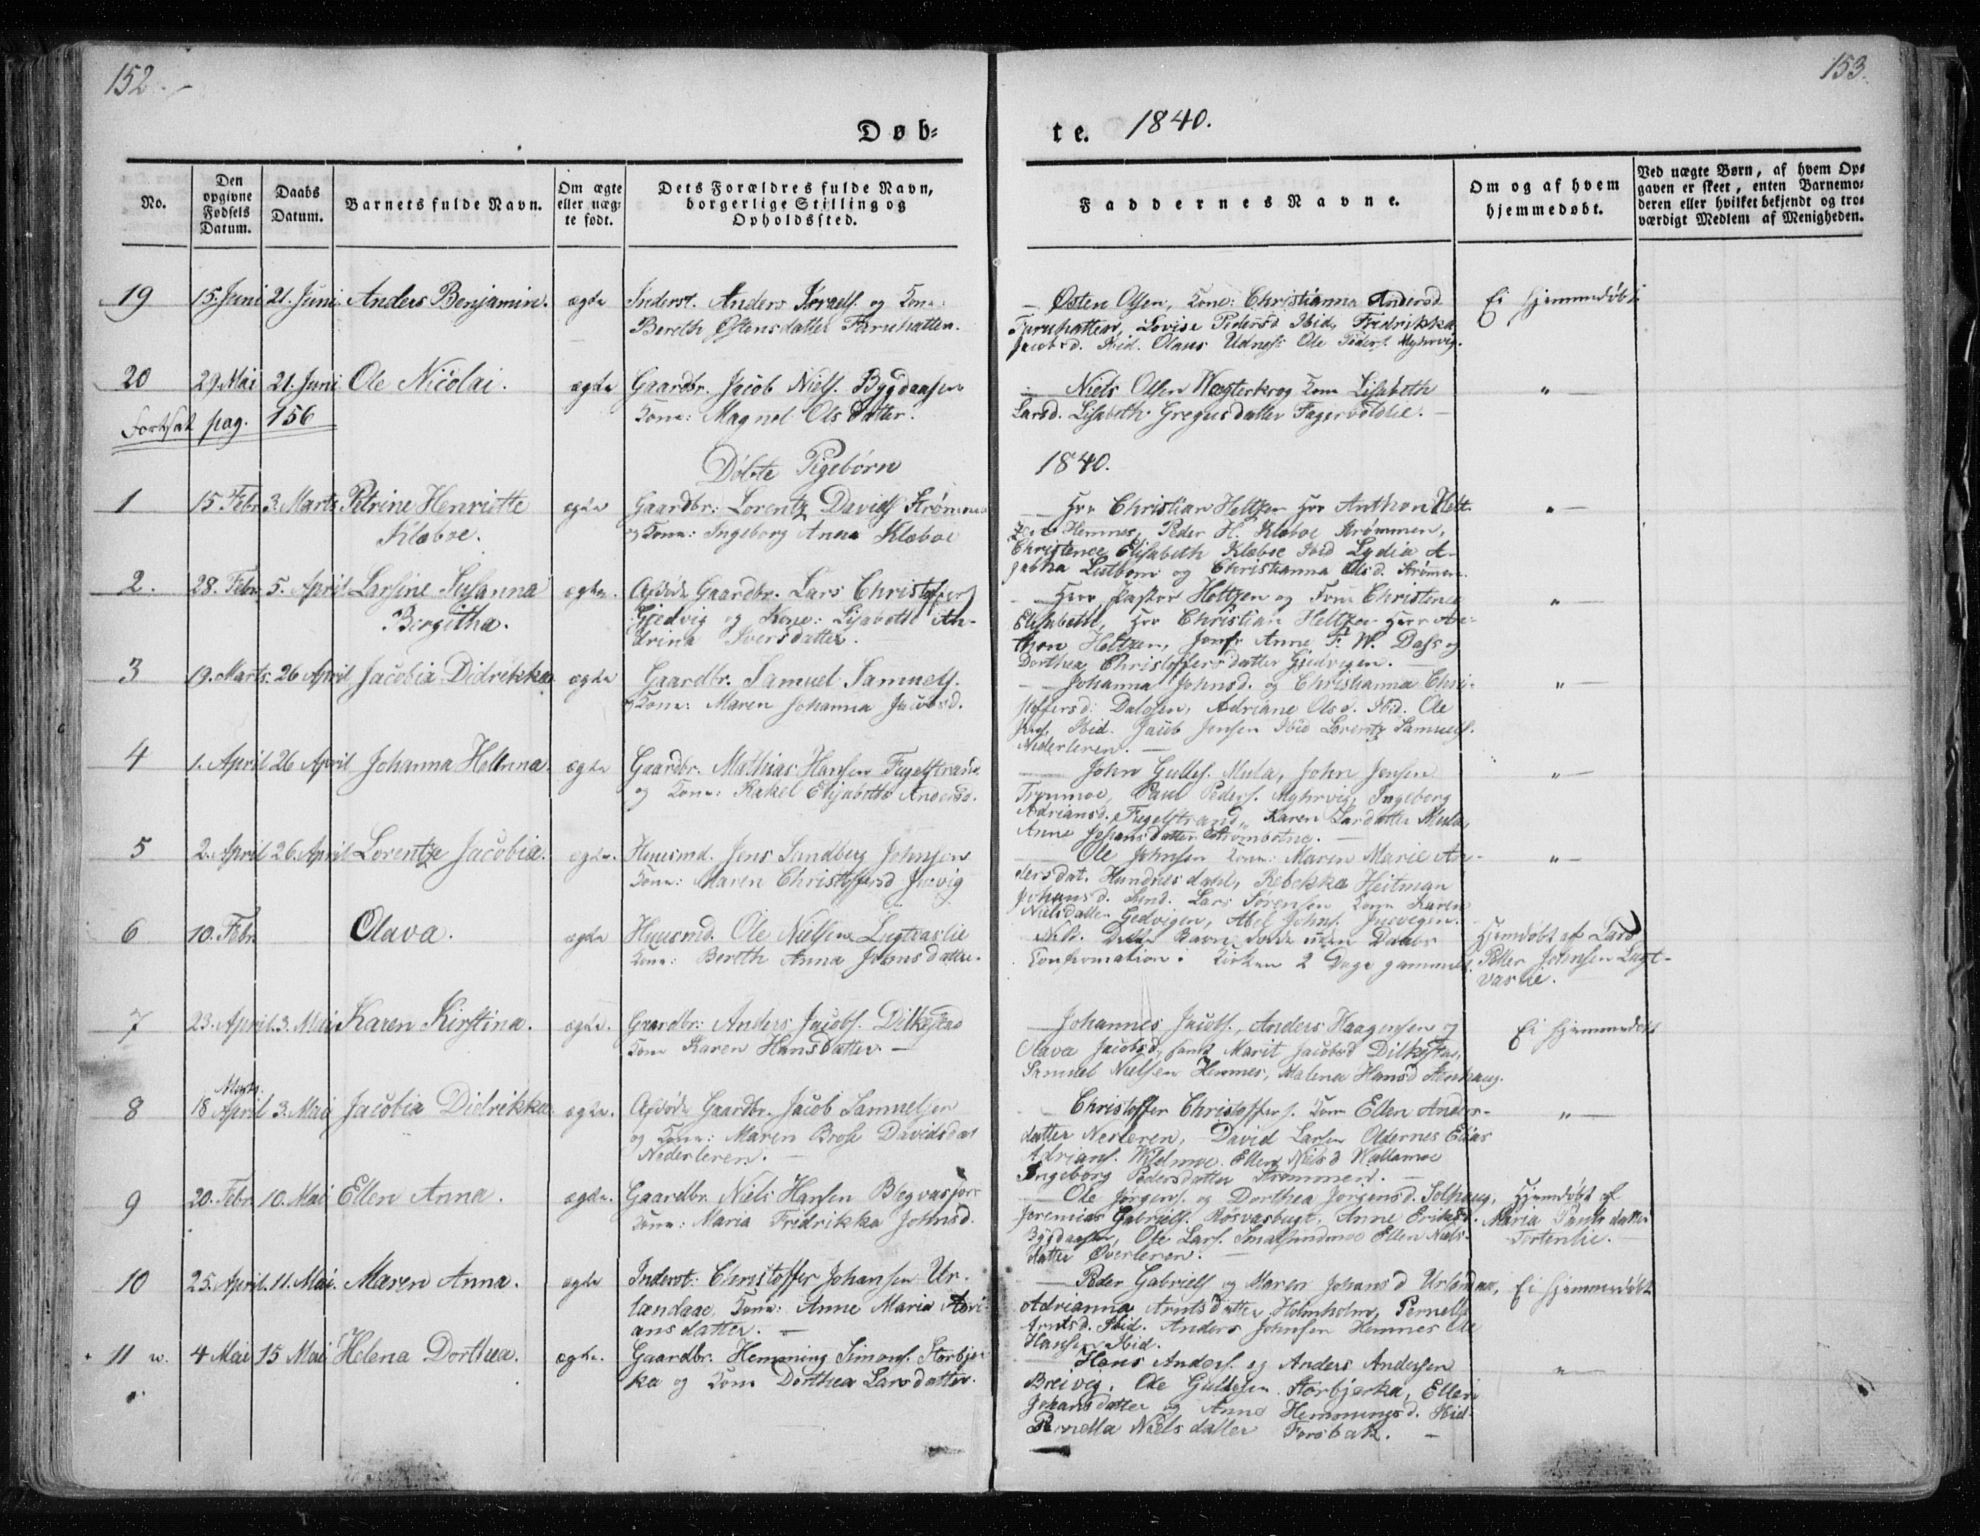 152.
153.
Døb-
te. 1840.
No.
Den opgivne Fødsels Datum.
Daabs Datum.
Barnets fulde Navn.
Om ægte eller uægte født.
Dets Forældres fulde Navn, borgerlige Stilling og Opholdssted.
Faddernes Navne.
Om og af hvem hjemmedøbt.
Ved uægte Børn, af hvem Opgaven er skeet, enten Barnemoderen eller hvilket bekjendt og troværdigt Medlem af Menigheden.
19 15. Juni 21. Juni. Anders Benjamin. ægte Inderst. Anders Israels. og Kone:
Bereth Østensdatter Furuhatten.
Østen Olsen, Kone: Christianna Andersd
Furuhatten, Lovise Pedersd Ibid, Fridrikka
Jacobsd. Ibid. Olaus Udnes: Ole Peders. Myhrvig.
Ei hjemmedøbt
20 29. Mai 21. Juni Ole Nicolai. ægte Gaardbr. Jacob Niels. Bygdaasen
Kone: Magnel Olsdatter.
Niels Olsen Wægterkrog Kone Lisabeth
Larsd. Lisabeth Gregusdatter Fagerbolie.
"
Fortsat pag. 156
Døbte Pigebørn
1840.
1 15 Febr. 3. Marts Petrine Henriette
Klæboe.
ægte Gaardbr: Lorentz Davids Strømmen
og Kone: Ingeborg Anna Klæboe
Hrr Christian Holtzen Hrr Anthon Holt-
zen Hemnes, Peder H. Klæboe Strømmen,
Christence Elisabeth Klæboe Ibid Lydia A-
gatha Listbom og Christianna Olsd. Strømmen.
"
2. 28. Febr. 5. April Larsine Susanna
Birgitha.
ægte. Afdøde Gaardbr. Lars Christoffers
Gjedvig og Kone: Lisabeth An-
drina Iversdatter.
Herr Pastor Holtzen og Kone Christence
Elisabeth, Hrr Christian Holtzen Herr An-
thon Holtzen, Jomfr Anne F. W. Dass og
Dorthea Christoffersdatter Gjedvigen.
"
3 19. Marts. 26 April Jacobia Didrikka ægte Gaardbr. Samuel Samuels.
og Kone: Maren Johanna Jacobsd.
Johanna Johnsd. og Christianna Chri-
stoffersd: Dalosen, Adriane Olsd. Ibid. Ole
Ibid. Jacob Jensen Ibid Lorentz Samuels.
Nederleren.
"
4 1. April 26 April Johanna Helenna. ægte Gaardbr. Mathias Hansen Fugelstrand
og Kone: Rakel Elisabeth Andersd.
John Gulles. Mula, John Jensen
Paul Peders. Myhrvig, Ingeborg
Adriansd. Fugelstrand, Karen Larsdatter Mula,
Anne Johansdatter Strømbotne.
"
5 2. April 26. April Lorentze Jacobia. ægte. Huusmd. Jens Sandberg Johnsen
Kone: Maren Christoffersd Juvig
Ole Johnsen Kone: Maren Marie An-
dersdat. Hundnesdahl, Rebekka Heitman
Johansd. Sund. Lars Sørensen Kone Karen
Nielsdatter Gedvigen, Abel Johns. Juevegen.
"
6 10. Febr. Olava. ægte Huusmd. Ole Nielsen Lugtvaslie
Kone: Bereth Anna Johnsdatter.
NB. Dette Barn døde uden Daabs
Confirmation i Kirken 2 Dage gammel.
Hjemdøbt af Lars
Peder Johnsen Lugt-
vaslie.
7 23. April. 3. Mai Karen Kirstina. ægte. Gaardbr: Anders Jacobs. Dilkestad
Kone Karen Hansdatter.
Johannes Jacobs., Anders Haagensen og
Olava Jacobsd, samt Marit Jacobsd Dilkestad,
Samuel Nielsen Hemnes, Malena Hansd Stenhaug.
Ei hjemmedøbt
8 Marts
18 April 3. Mai Jacobia Didrikka ægte. Afdøde Gaardbr. Jacob Samuelsen
og Kone: Maren Brose Davidsdat
Nederleren.
Christoffer Christoffers. Kone Ellen Anders-
datter Nerleren, David Larsen Oldernes Elias
Adrians. Wildmoe. Ellen Nielsd Wallamoe
Ingeborg Pedersdatter Strømmen.
"
9 20. Febr. 10. Mai Ellen Anna. ægte. Gaardbr. Niels Hansen Blegvasjor
Kone: Maria Fridrikka Johnsd.
Ole Jørgens. og Dorthea Jørgensd. Solhaug,
Jeremias Gabriels. Røsvasbugt, Anne Eriksd.
Bygdaasen, Ole Lars. Smalsundmoe Ellen Niels-
datter Overleren.
Hjemdøbt af
Maria Paulsdatter
Tortenlie.
10 25. April. 11. Mai. Maren Anna. ægte Inderst: Christoffer Johansen Ur-
landaae, Kone: Anne Maria Adri-
ansdatter.
Peder Gabriels og Maren Johansd Urlandaae,
Adrianna Arntsdatter Holmholm, Pernelle
Arntsd. Ibid. Anders Johnsen Hemnes Ole
Hansen Ibid.
Ei hjemmedøbt
11 4 Mai 15 Mai Helena Dorthea. ægte. Gaardbr. Hemming Simons. Storbjer-
ka og Kone Dorthea Larsdatter.
Hans Anders. og Anders Andersen
Breivig, Ole Guldesen Storbjerka, Ellen
Johansdatter og Anne Hemmingsd. Ibid
Pernella Nielsdatter Forsbak.
"